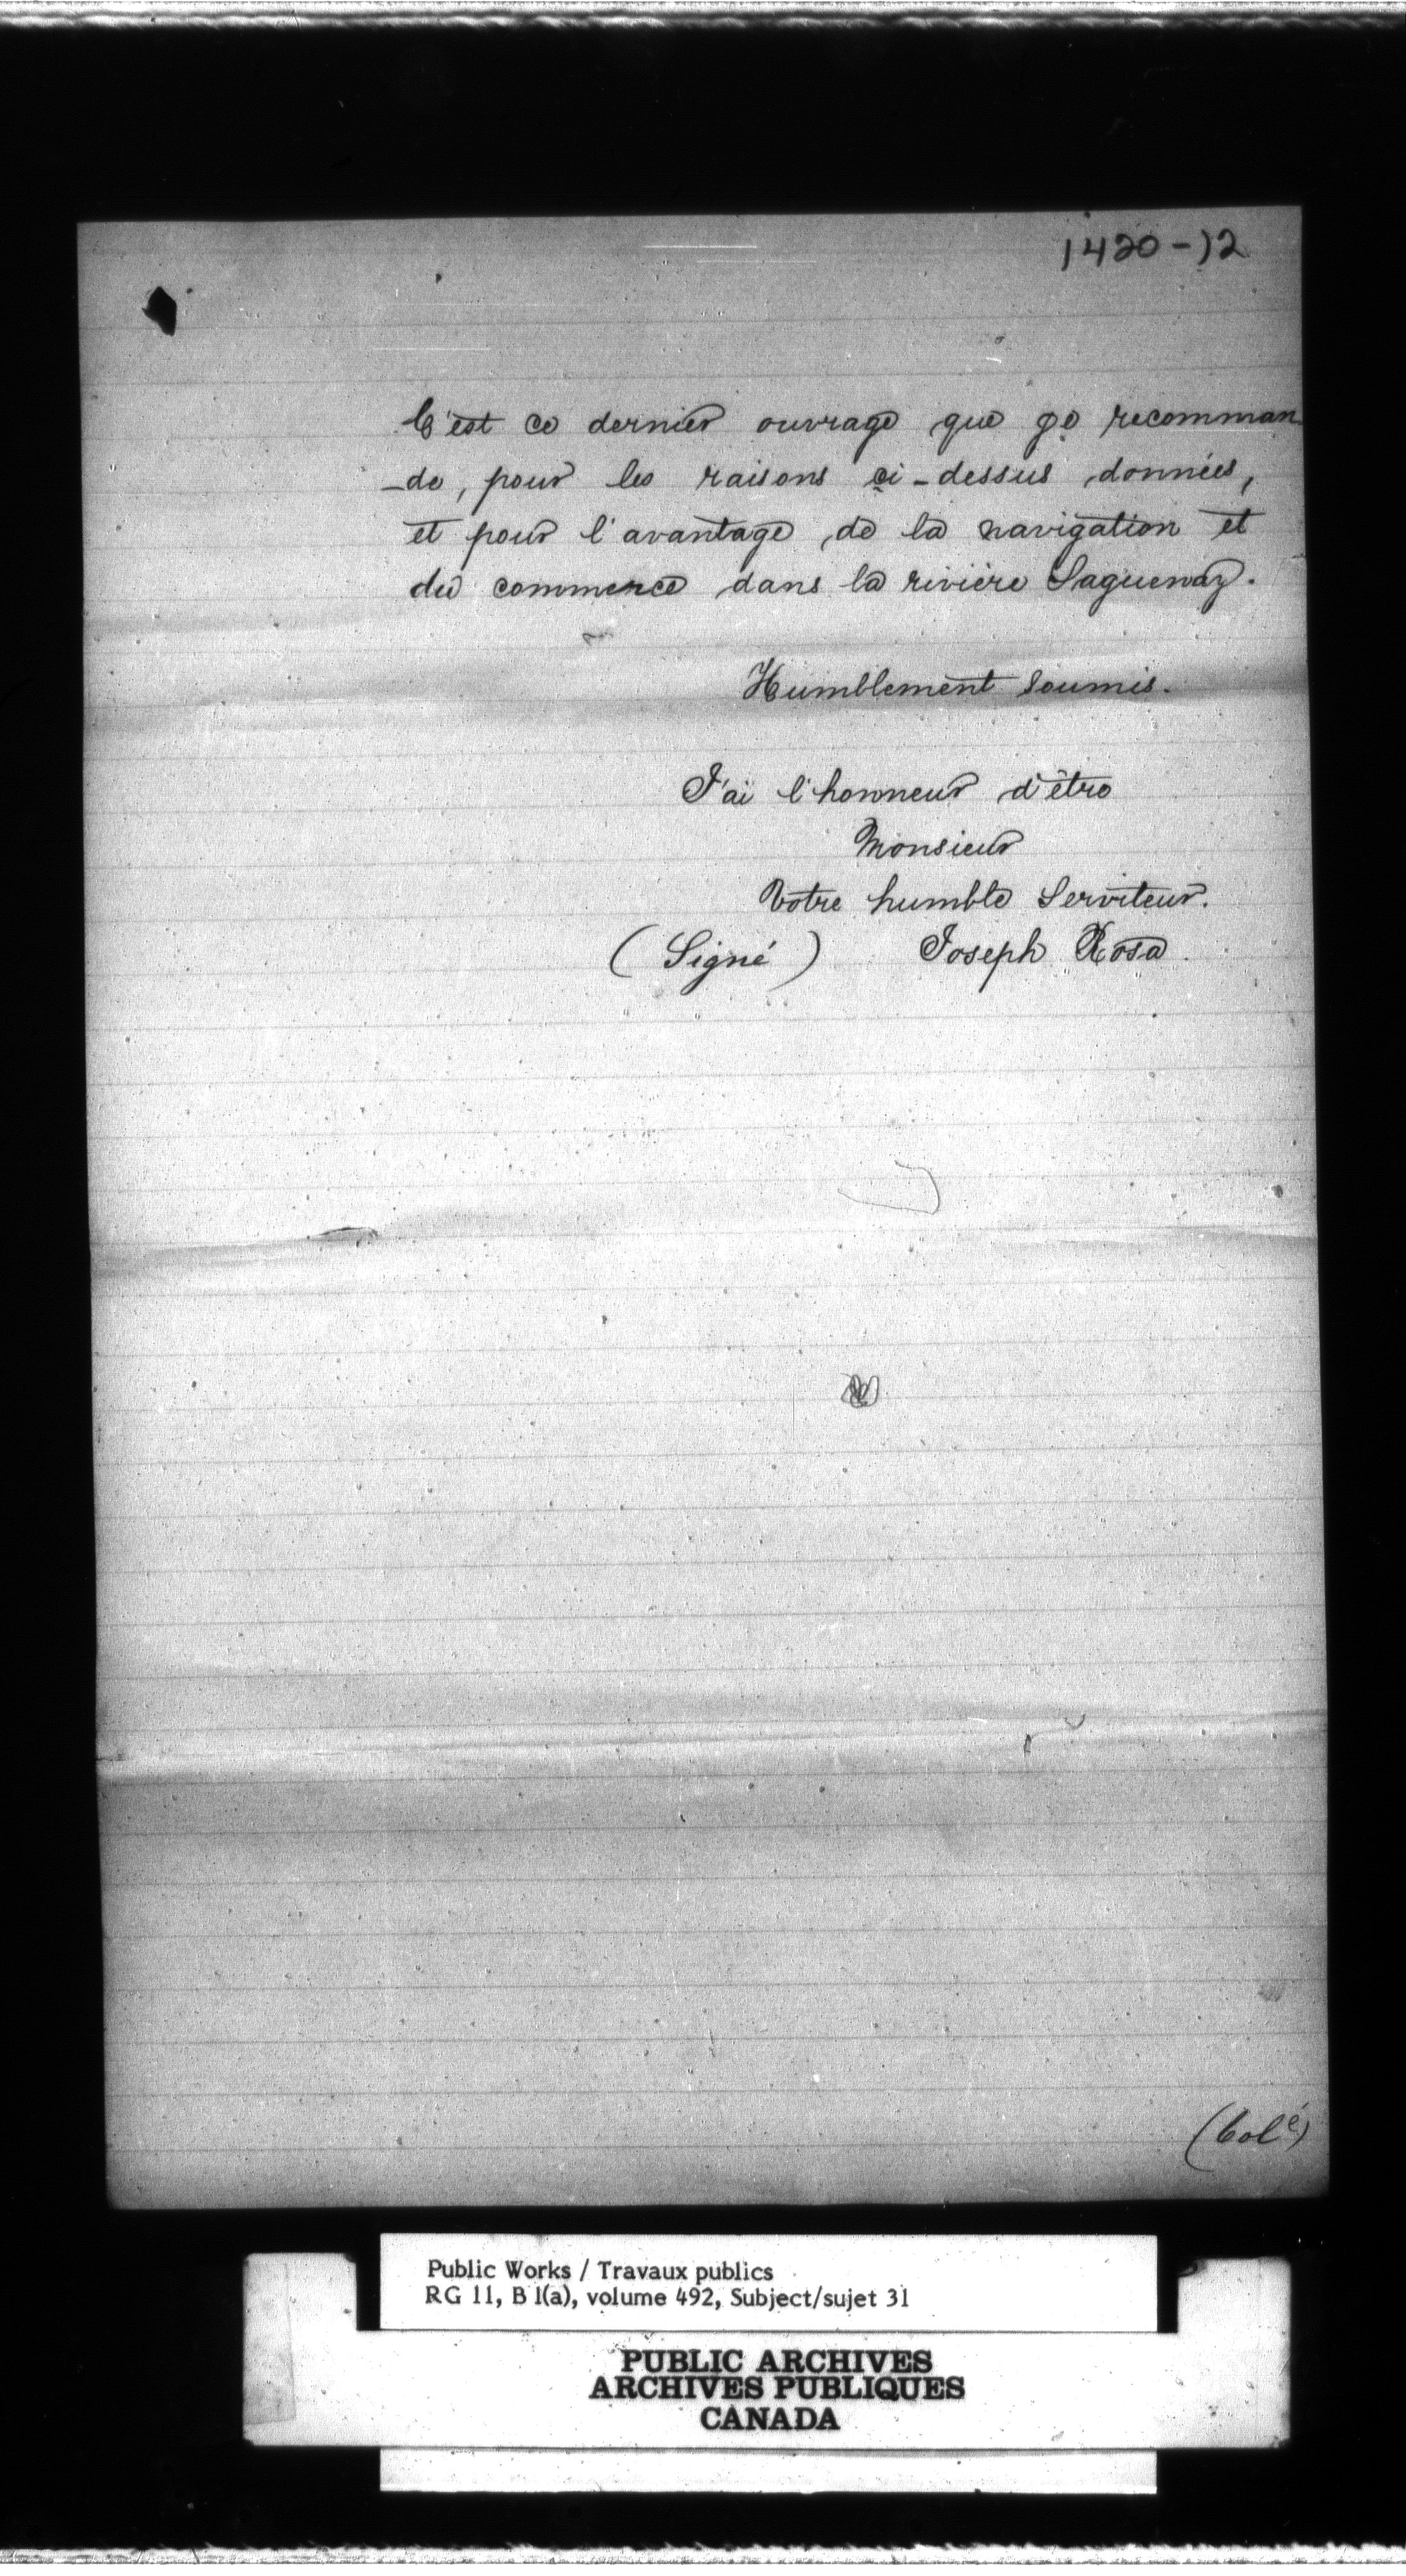 1420-12
C'est ce dernier ouvrage que je recomman
-de, pour les raisons ci-dessus données,
et pour l'avantage de la navigation et
du commerce dans la rivière Saguenay.
Humblement soumis.
J'ai l'honneur d'être
Monsieur
Votre humble Serviteur.
(Signé) Joseph Rosa.
(Colé)
Public Works / Travaux publics
RG 11, B 1(a), volume 492, Subject/sujet 31
PUBLIC ARCHIVES
ARCHIVES PUBLIQUES
CANADA